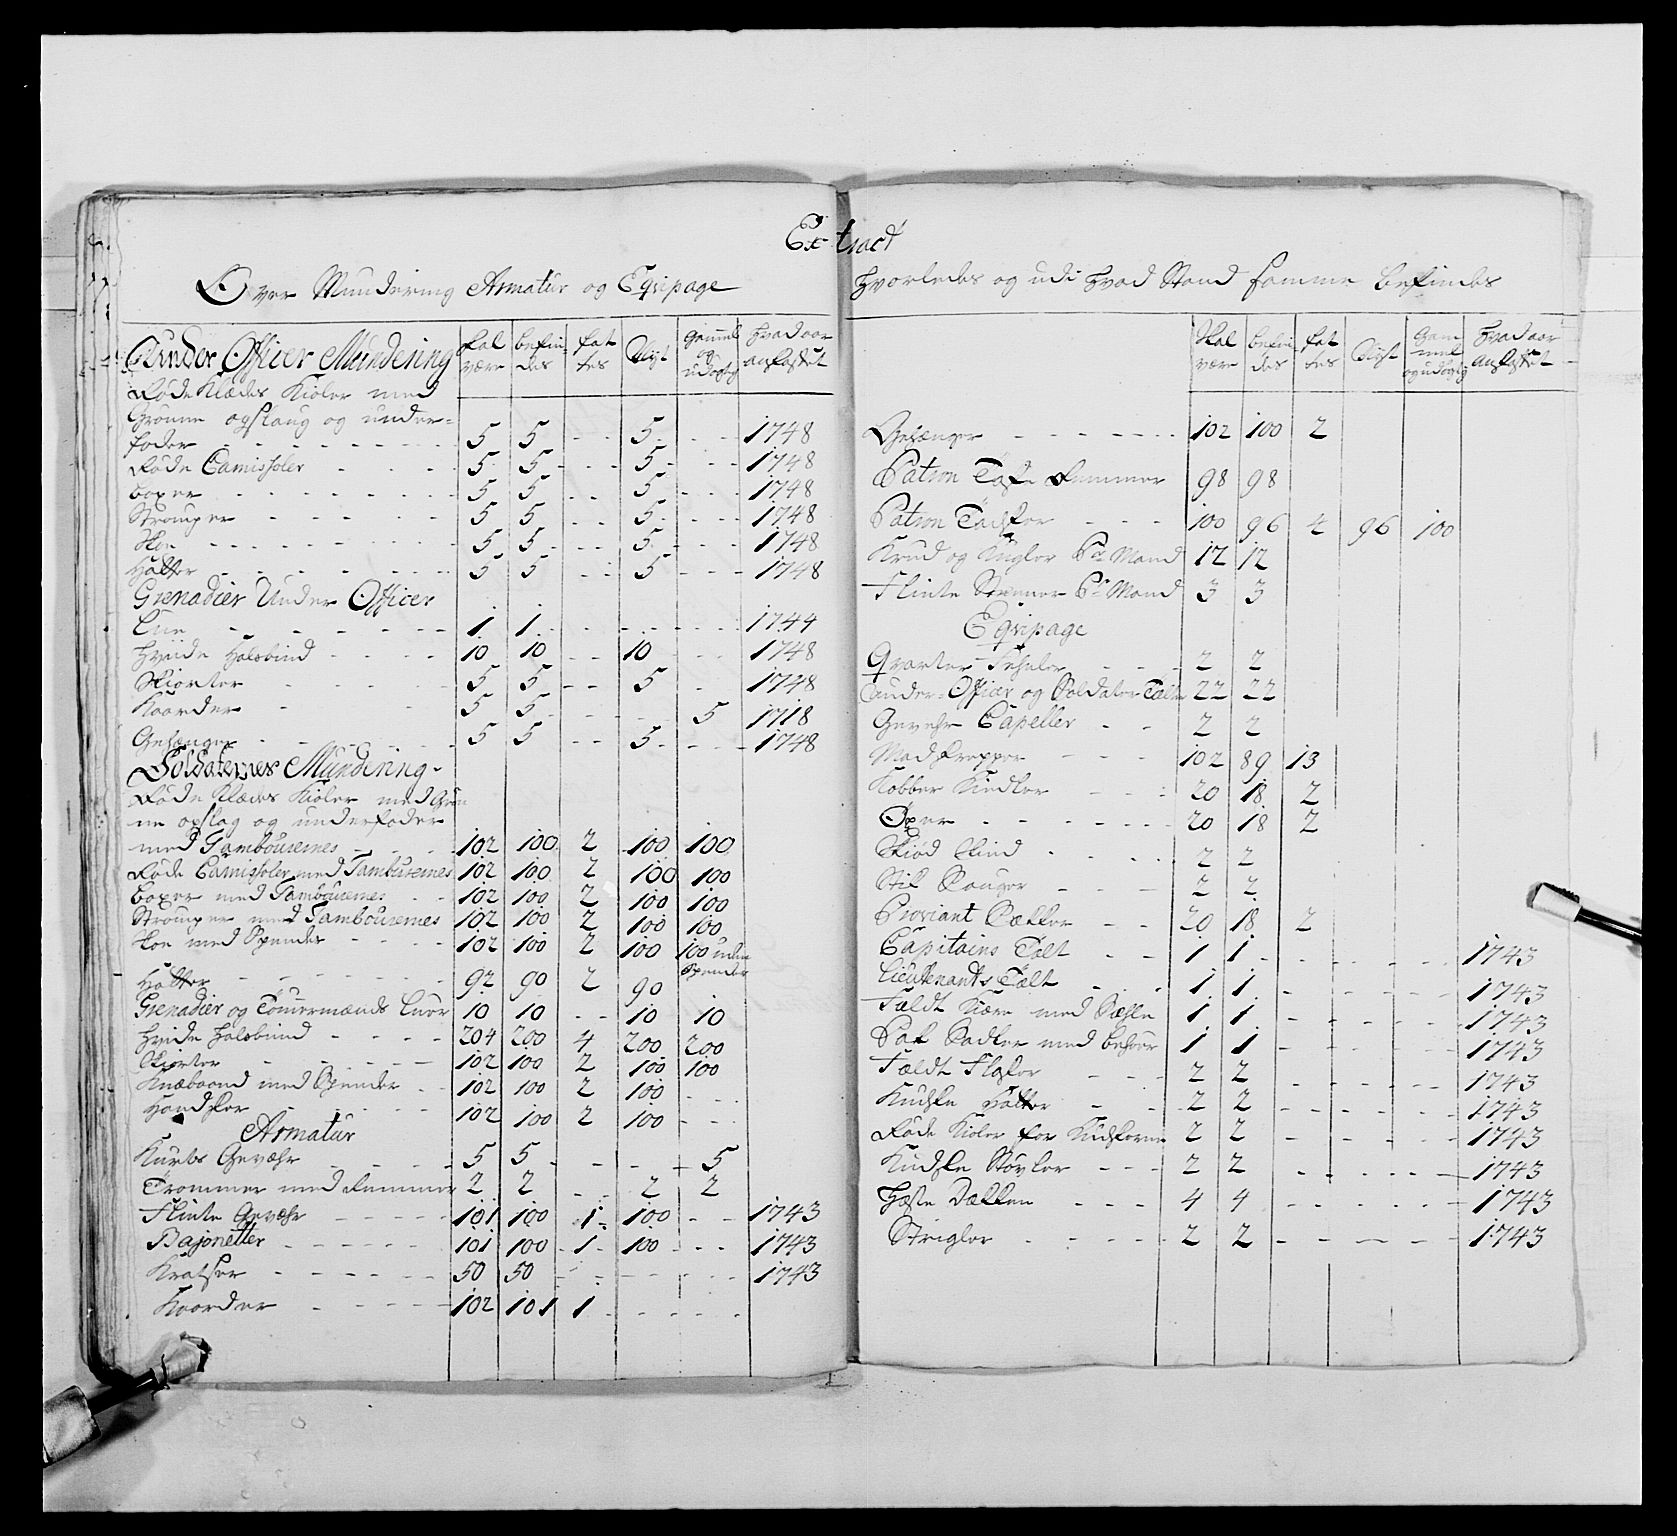 Extract
Over Mundering Armatur og Eqvipage
hvorledes og udi hvad Stand samme befindes
Under Officer Mundering | skal være | befindes | fattes | Nyt | Gammel og udygtig | hvad aar anskaffet
Røde Klædes Kioler med
Grønne opslaug og under-
foder 5 5 5 1748
Røde Camisoler 5 5 5 1748
Boxer 5 5 5 1748
Strømper 5 5 5 1748
Skoe 5 5 5 1748
Hatter 5 5 5 1748
Grenadier Under Officer
Lue 1 1 1744
Hviide Halsbind 10 10 10 1748
Skiorter 5 5 5 1748
Kaarder 5 5 5 1718
Gehænger 5 5 5 1748
Soldaternes Mundering
Røde Klædes Kioler med Grøn
ne opslag og underfoder
med Tambourernes 102 100 2 100 100
Røde Camisoler med Tamburernes 102 100 2 100 100
Boxer med Tambourernes 102 100 2 100 100
Strømper med Tambourernes 102 100 2 100 100
Skoe med Spender 102 100 2 100 100 uden Spender
Hatter 92 90 2 90
Grenadier og Tømermænds Luer 10 10 10 10
Hvide Halsbind 204 200 4 200 200
Skiorter 102 100 2 100 100
Knæbaand med Spender 102 100 2 100
Handsker 102 100 2 100
Armatur
Kurtz Gevæhr 5 5 5
Trommer med Remmer 2 2 2 2
Flinte Gevæhr 101 100 1 100 1743
Bajonetter 101 100 1 100 1743
Kratser 50 50 1743
Kaarder 102 101 1
Skal være | befindes | fattes | Nyt | Gammel og udygtig | Hvad aar anskaffet
Gehænger 102 100 2
Patron Taske Remmer 98 98
Patron Tasker 100 96 4 96 100
Krud og Kugler Pr Mand 12 12
Flinte Steener Pr Mand 3 3
Eqvipage
Qvarteer 2 2
Under-Officer og Soldater Telte 22 22
Gevehr Capeller 2 2
Mad 102 89 13
Kobber Kiedler 20 18 2
Øxer 20 18 2
Skiød Skind 2 2
Stik 2 2
Proviant Sækker 20 18 2
Capitains Telt 1 1 1743
Lieutenants Telt 1 1 1743
Feldt Kiære med 1 1 1743
Pak Sadler med behøer 1 1 1743
Feldt Flasker 2 2 1743
Kudske Hatter 2 2 1743
Røde Kioler for Kudskerne 2 2 1743
Kudske Støvler 2 2 1743
Heste Dækken 4 4 1743
Strigler 2 2 1743